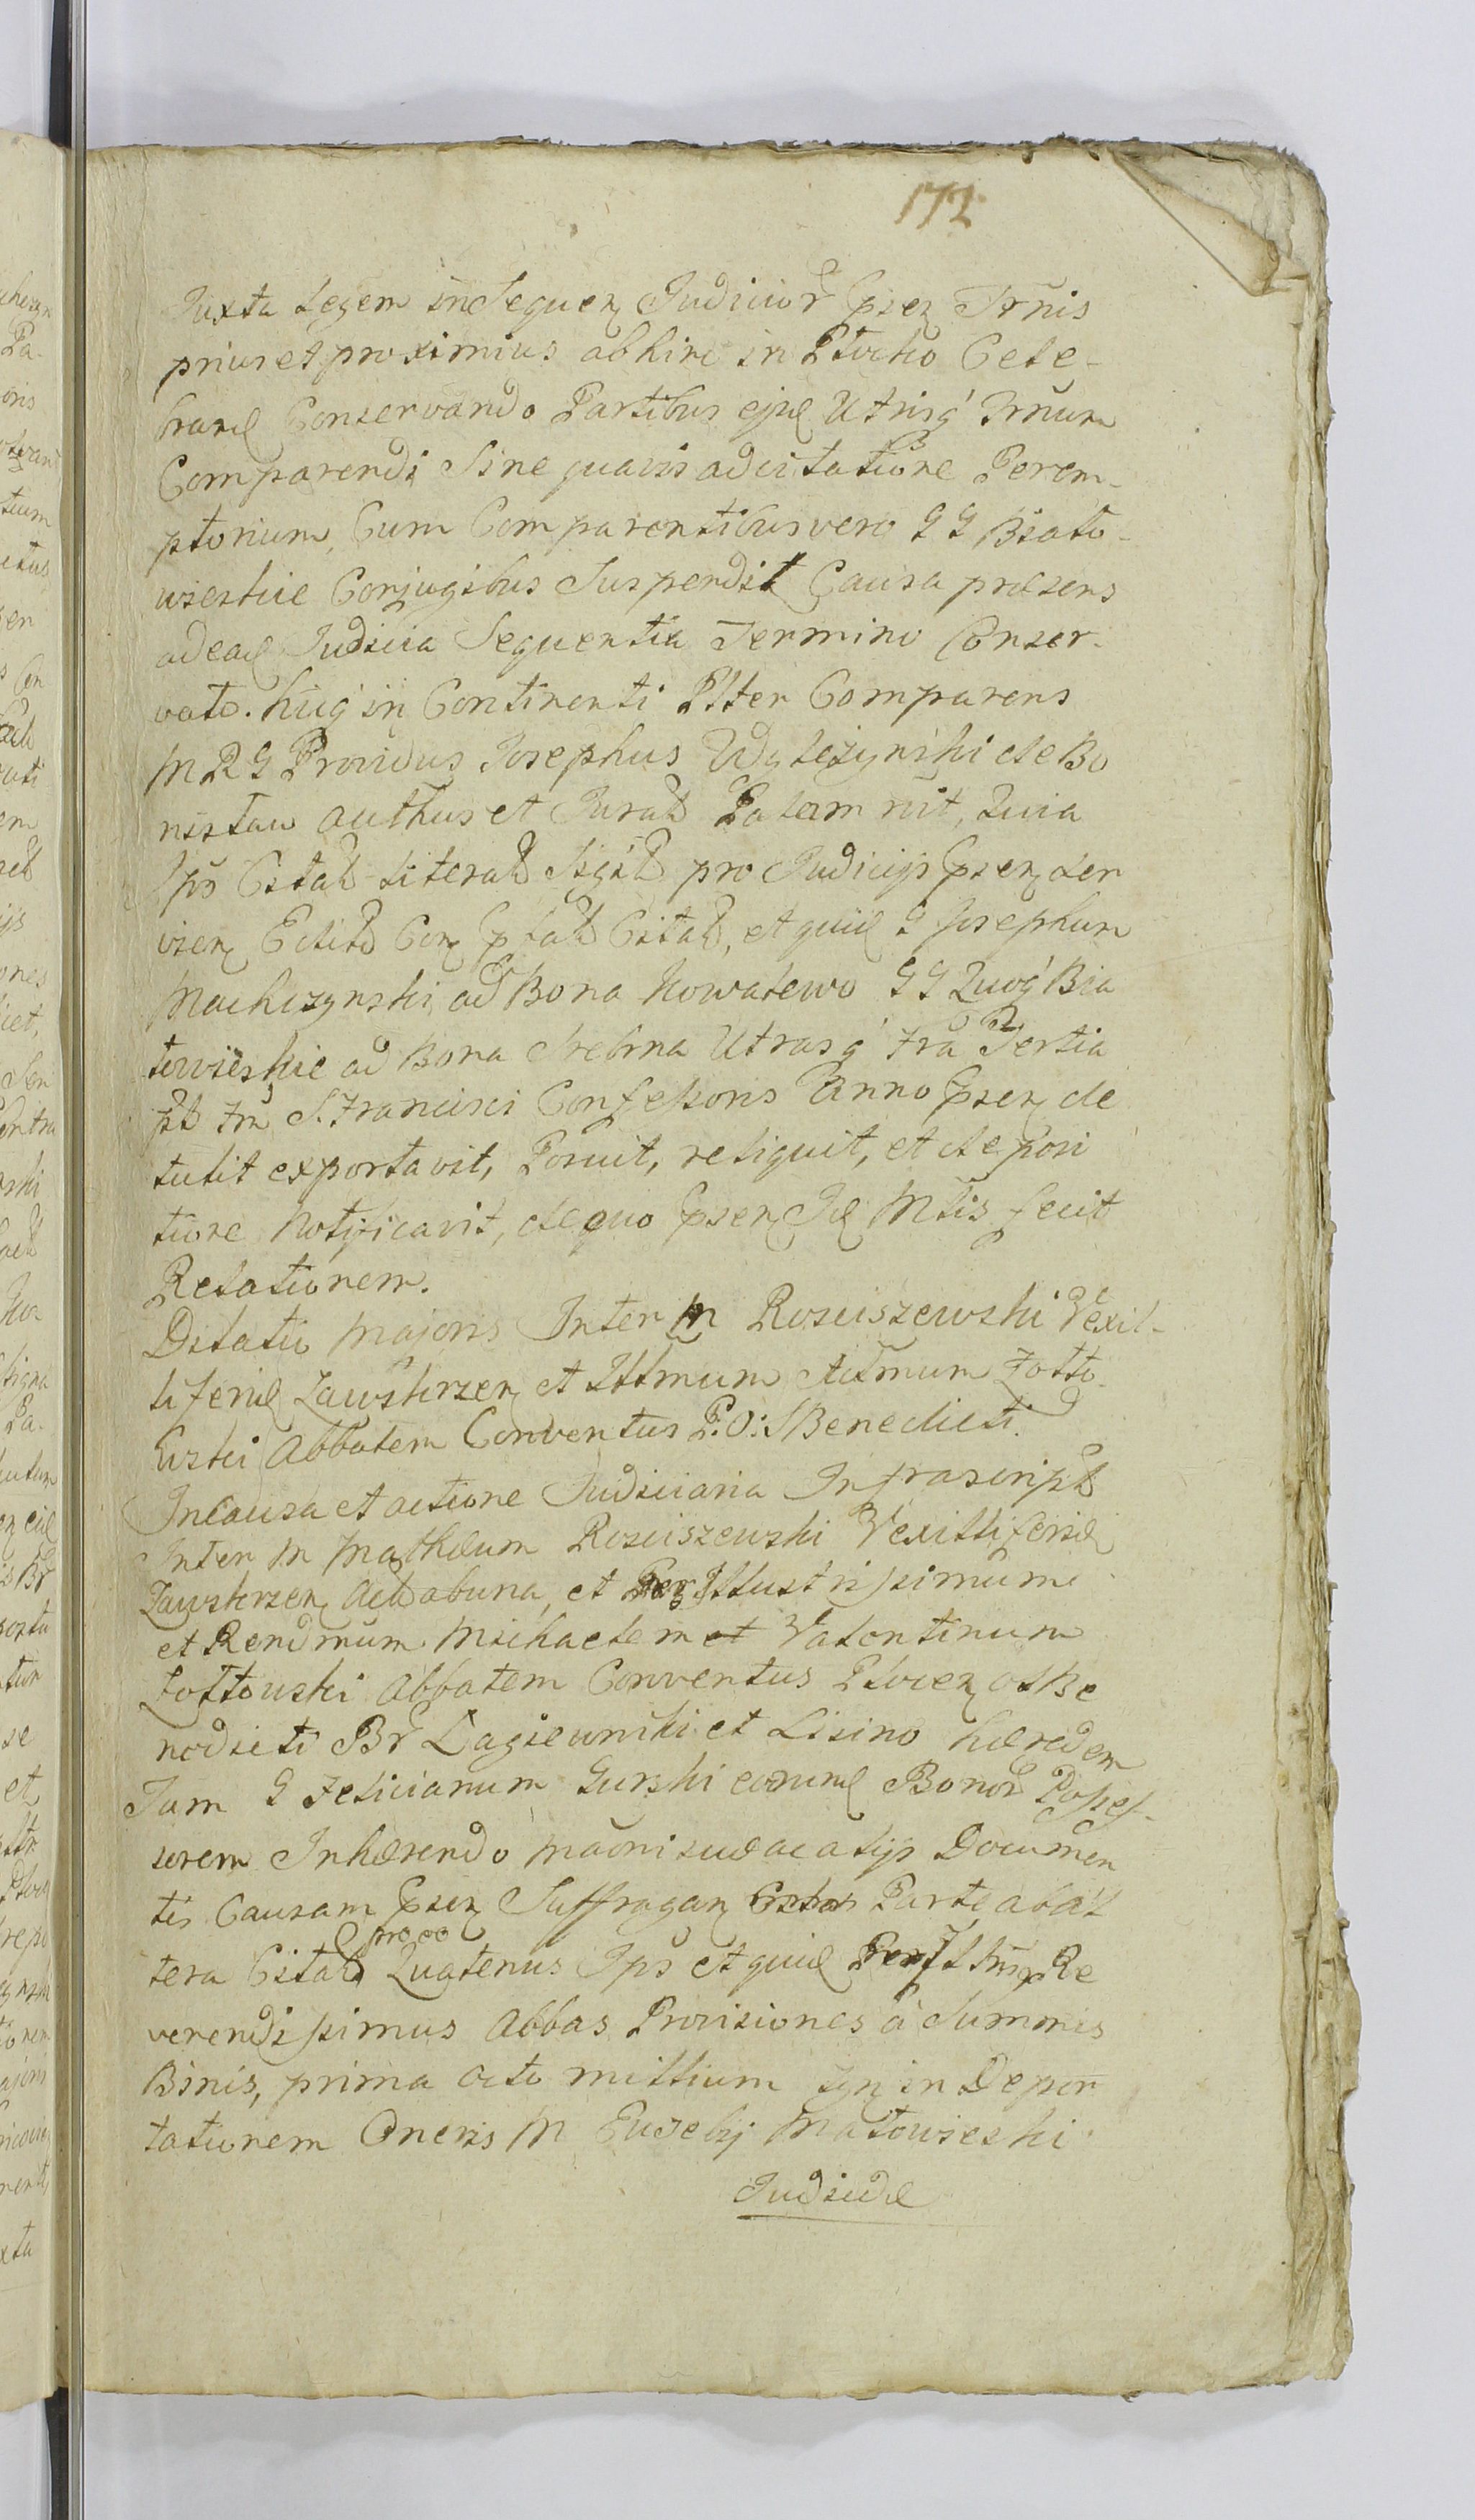 172
Juxta Legem in Sequen Judicior Pnsen Trnis
prius et proximius ab hinc in Płocko Cele-
brand Conservando Partibus ejusd Utrisq Trnum
Comparendi Sine quavis adcitatione Perem-
ptorium, Cum Comparentibus vero GG Biało-
wieskie Conjugibus Suspendit Causa præsens
ad ead Judicia Sequentia Termino Conser-
vato. Hicq in Continenti Pltter Comparens
M R G Providus Josephus Wyleżynski de Bo
nisław authus et Jurat Palam rĩt, Quia
Ips Citat Literat Sigil pro Judicijs Pnsen Ser
vien Edit Con Citat, et quid G Josephum
Machczynski ad Bona Kowalewo GG Quoq Bia
łowieskie ad Bona Srebrna Utrasq fra Tertia
pt fm S. Francisci Confessoris Anno Pnsen de
tulit exportavit, Posuit, reliquit, et de posi
tione Notificavit, de quo Pnsen Jud Mtis fecit
Relationem.
Dilatio Majoris Inter M Rosciszewski Vexil-
liferid Zawskrzen et Illmum Admum Zołto
wski Abbatem Conventus P: O: S Benedicti.
In Causa et actione Judiciaria Infrascript
Inter M Mathæum Rosciszewski Vexilliferid
Zawskrzen Act ab una, et Per Illustrissimum
et Rendmum Michaelem et Valentinum
Zołtowski Abbatem Conventus Płocen O S Be
nedicti Br Łagiewniki et Lisino hæredem
Tum G Felicianum Gurski eorund Bonor Posses-
sorem Inhærendo Mãoni suæ ac alijs Documen
tis Causam Pnsen Suffragan Parte ab al
tera Citat Quatenus Ips et quid Per Illmg Re
verendissimus Abbas Provisiones à Summis
Binis, prima octo millium in Depor
tationem Oneris M Eusebij Małowieski
Judicid